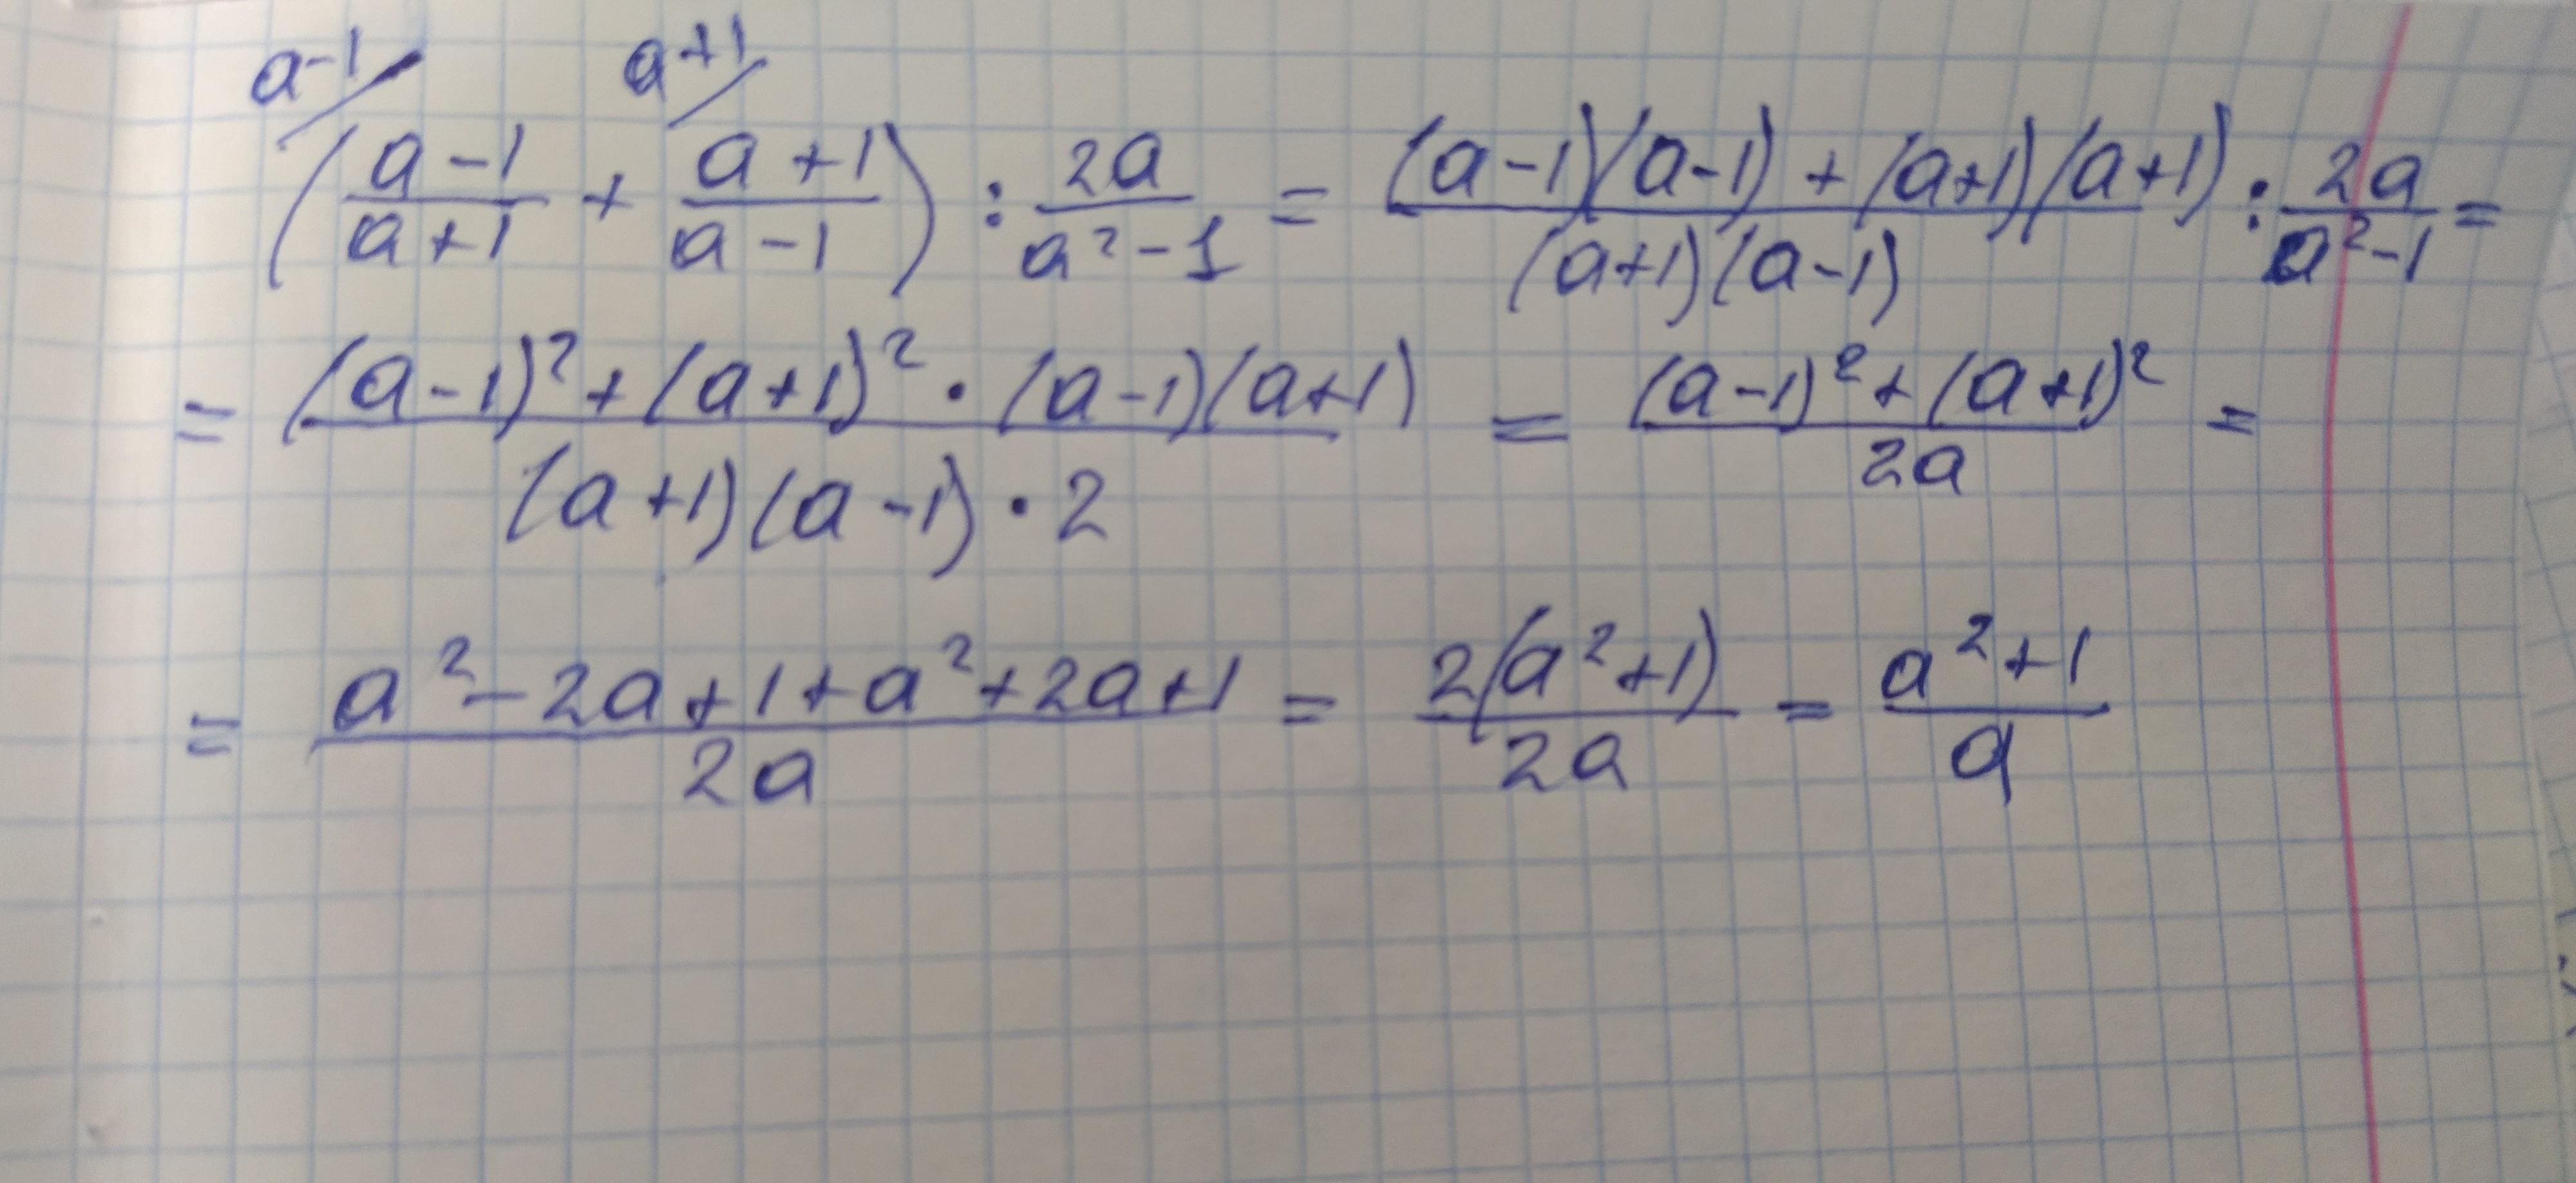 a-1/ a+1/
((a-1)/(a+1) + (a+1)/(a-1)) : 2a/(a²-1) = ((a-1)(a-1) + (a+1)(a+1))/((a+1)(a-1)) : 2a/(a²-1) =
= ((a-1)² + (a+1)² · (a-1)(a+1))/((a+1)(a-1) · 2) = ((a-1)² + (a+1)²)/(2a) =
= (a² - 2a + 1 + a² + 2a + 1)/(2a) = 2(a² + 1)/(2a) = (a² + 1)/a